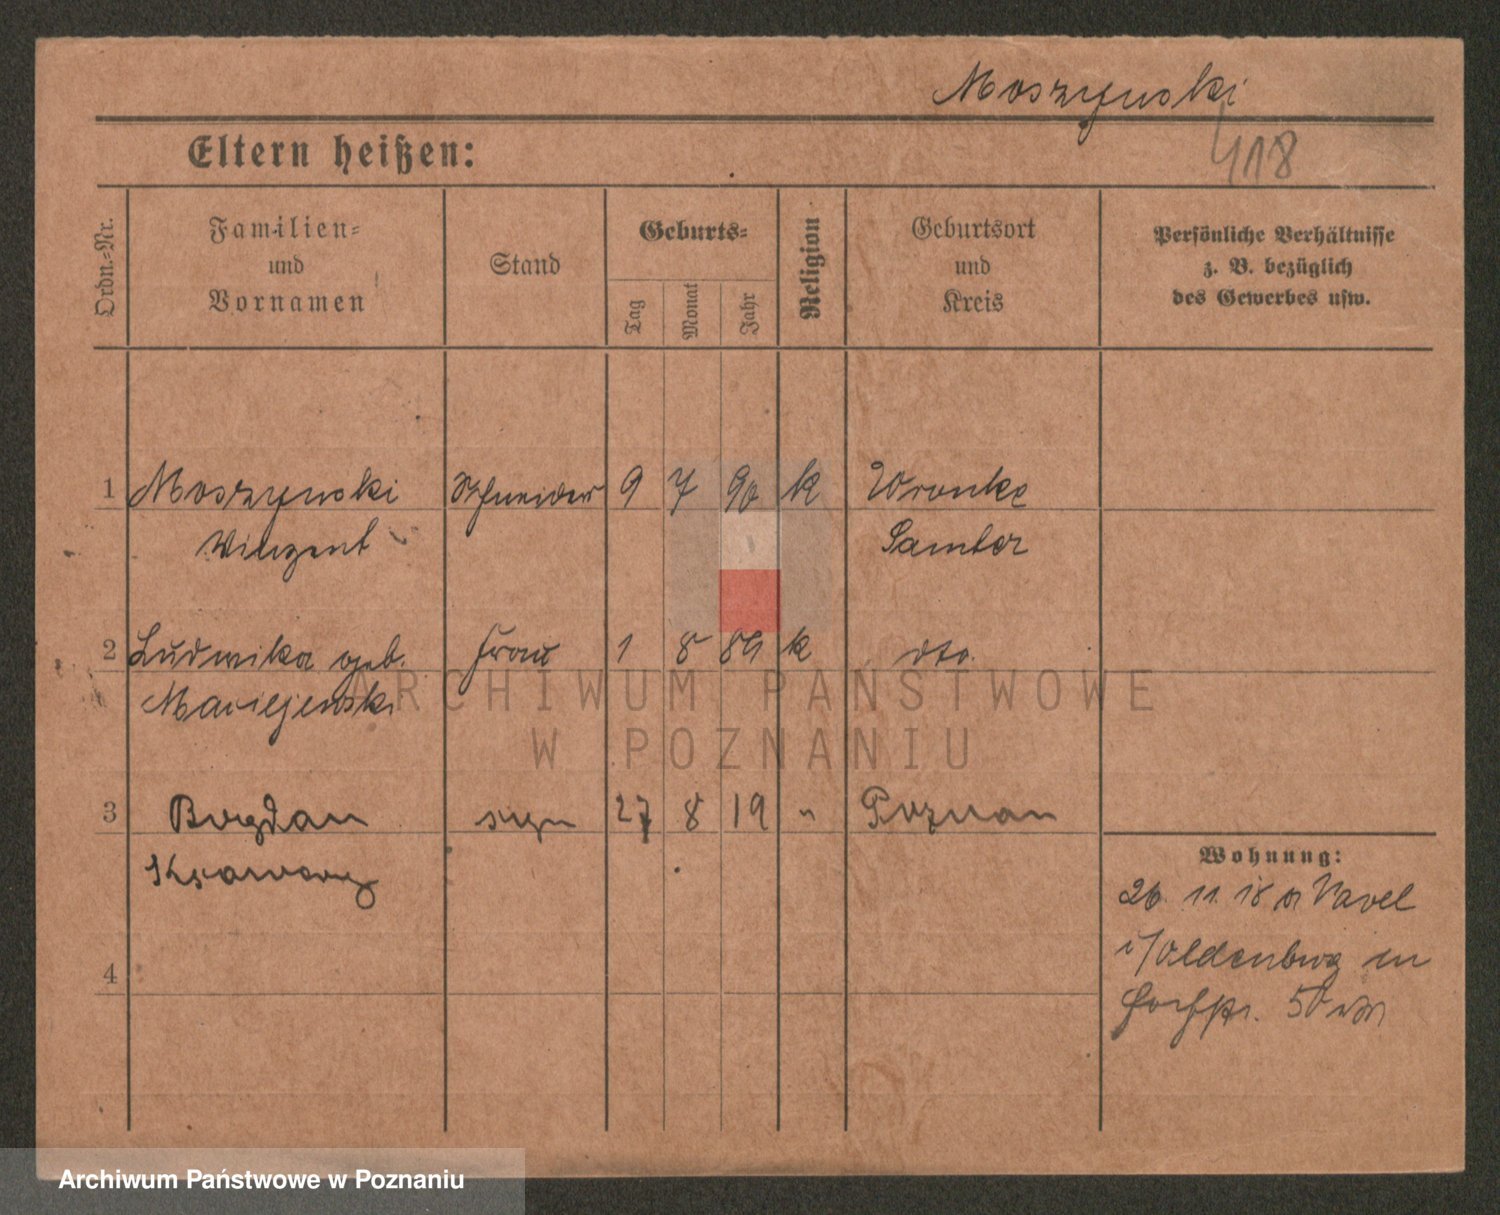 Moszynski
418
Eltern heißen:
Ordn.-Nr.
Familien- und Vornamen
Stand
Geburts-
Tag
Monat
Jahr
Religion
Geburtsort und Kreis
Persönliche Verhältnisse
z. B. bezüglich
des Gewerbes usw.
1 Moszynski Schneider 9 7 90 k Wronke
Vinzent Samter
2 Ludwika geb. Frau 1 8 89 k dto.
Maciejewski
ARCHIWUM PAŃSTWOWE
W POZNANIU
3 Bogdan syn 27 8 19 " Poznan
Ksawery
Wohnung:
26. 11. 18 Varel
i/Oldenburg
50
4
Archiwum Państwowe w Poznaniu